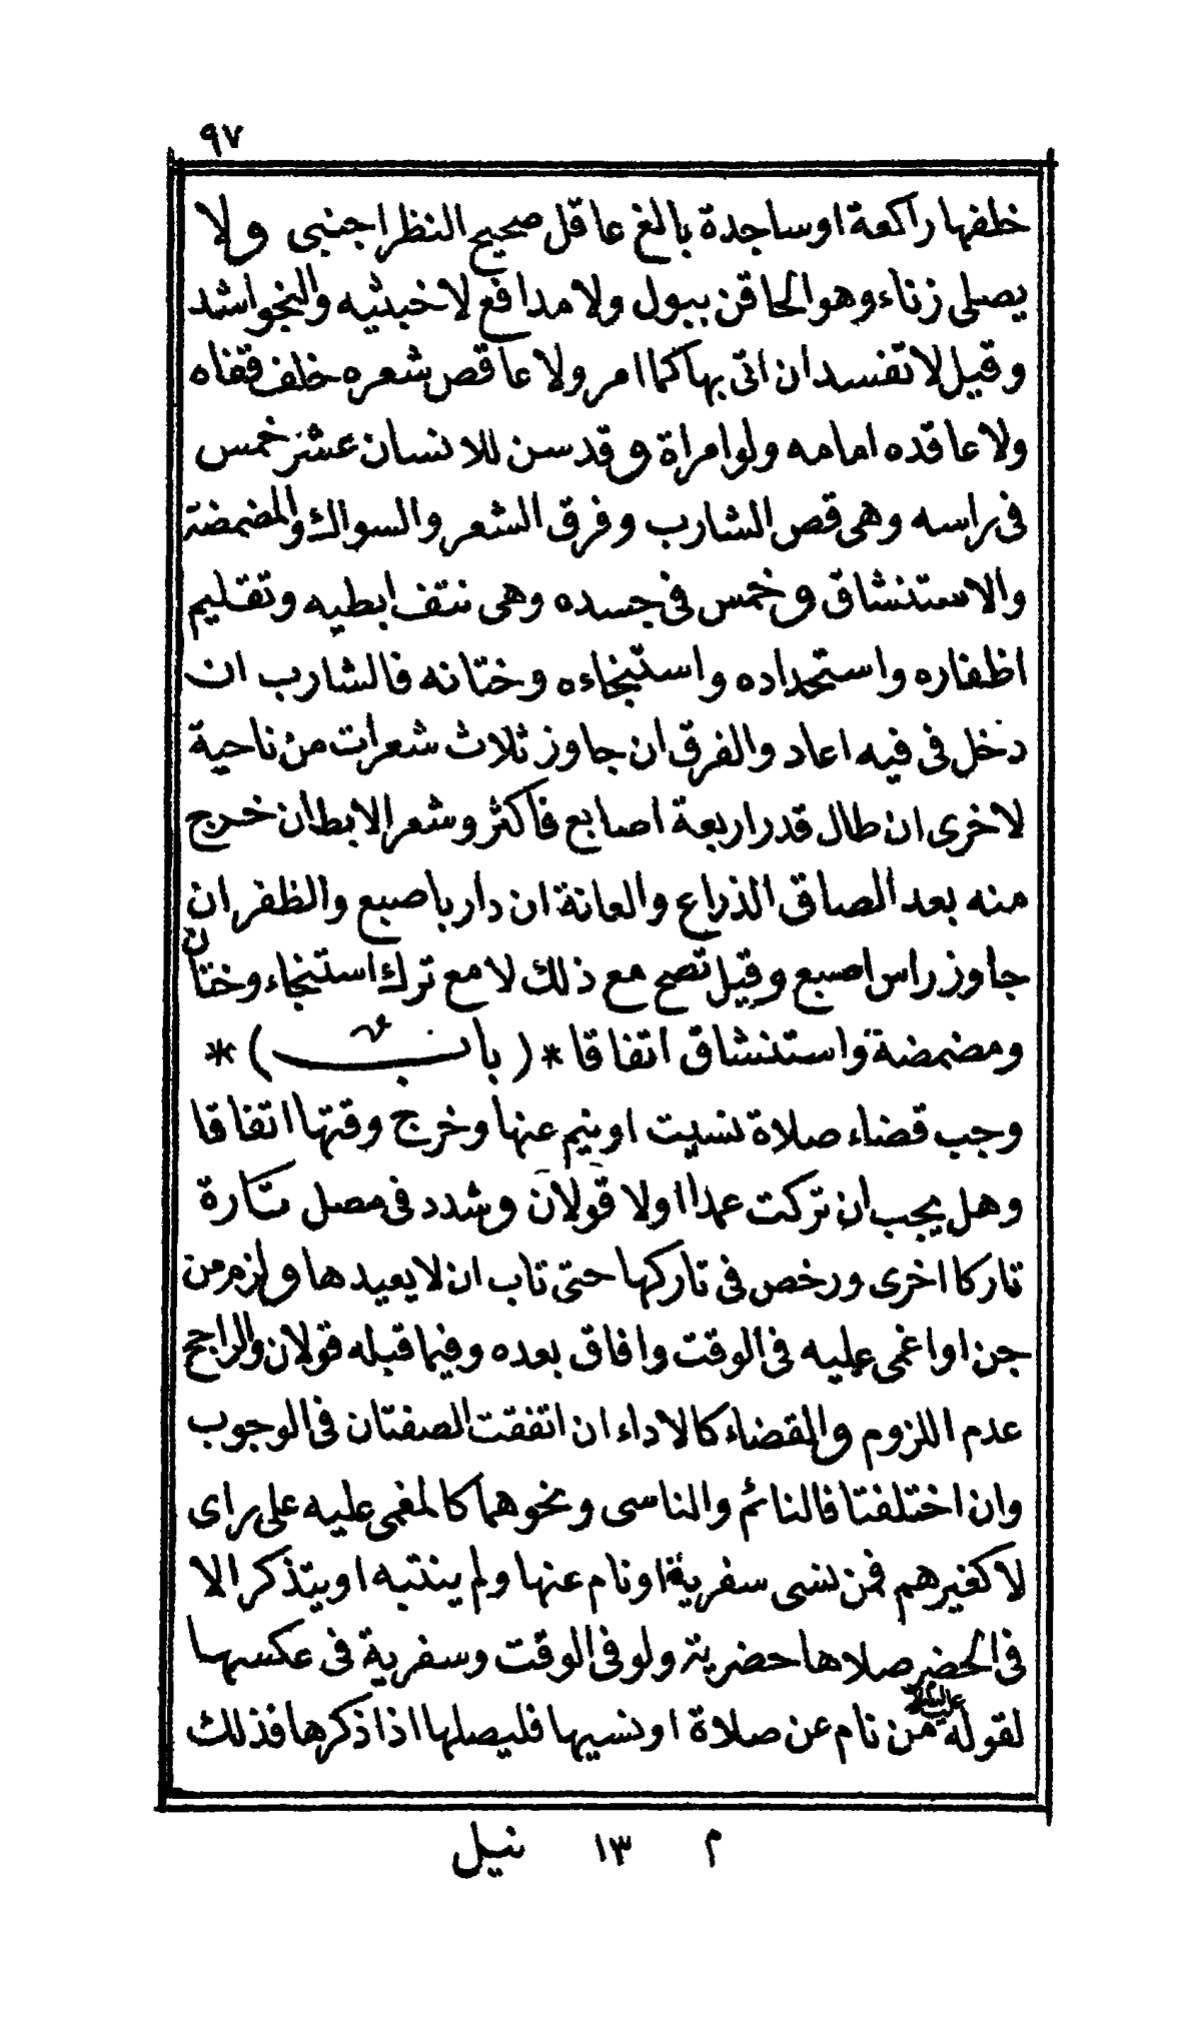 ٩٧
خلفها راكعة او ساجدة بالغ عاقل صحيح النظر اجنبى ولا
يصلى زناء وهو الحاقن ببول ولا مدافع لاخبثيه والنجو اشد
وقيل لا تفسد ان اتى بها كما امر ولا عاقص شعره خلف قفاه
ولا عاقده امامه ولو امراة وقد سن للانسان عشر خمس
فى راسه وهى قص الشارب وفرق الشعر والسواك والمضمضة
والاستنشاق وخمس فى جسده وهى نتف ابطيه وتقليم
اظفاره واستحداده واستنجاءه وختانه فالشارب ان
دخل فى فيه اعاد والفرق ان جاوز ثلاث شعرات من ناحية
لاخرى ان طال قدر اربعة اصابع فاكثر وشعر الابط ان خرج
منه بعد الصاق الذراع والعانة ان دار باصبع والظفر ان
جاوز راس اصبع وقيل تصح مع ذلك لا مع ترك استنجاء وختان
ومضمضة واستنشاق اتفاقا * ( باب ) *
وجب قضاء صلاة نسيت او نيم عنها وخرج وقتها اتفاقا
وهل يجب ان تركت عمدا اولا قولان وشدد فى مصل تارة
تاركا اخرى ورخص فى تاركها حتى تاب ان لا يعيدها ولزم من
جن او اغمى عليه فى الوقت وافاق بعده وفيما قبله قولان والراجح
عدم اللزوم والقضاء كالاداء ان اتفقت الصفتان فى الوجوب
وان اختلفتا فالنائم والناسى ونحوهما كالمغمى عليه على راى
لا كغيرهم فمن نسى سفرية او نام عنها ولم ينتبه او يتذكر الا
فى الحضر صلاها حضرية ولو فى الوقت وسفرية فى عكسها
لقوله عليه السلام من نام عن صلاة او نسيها فليصلها اذا ذكرها فذلك
م ١٣ نيل